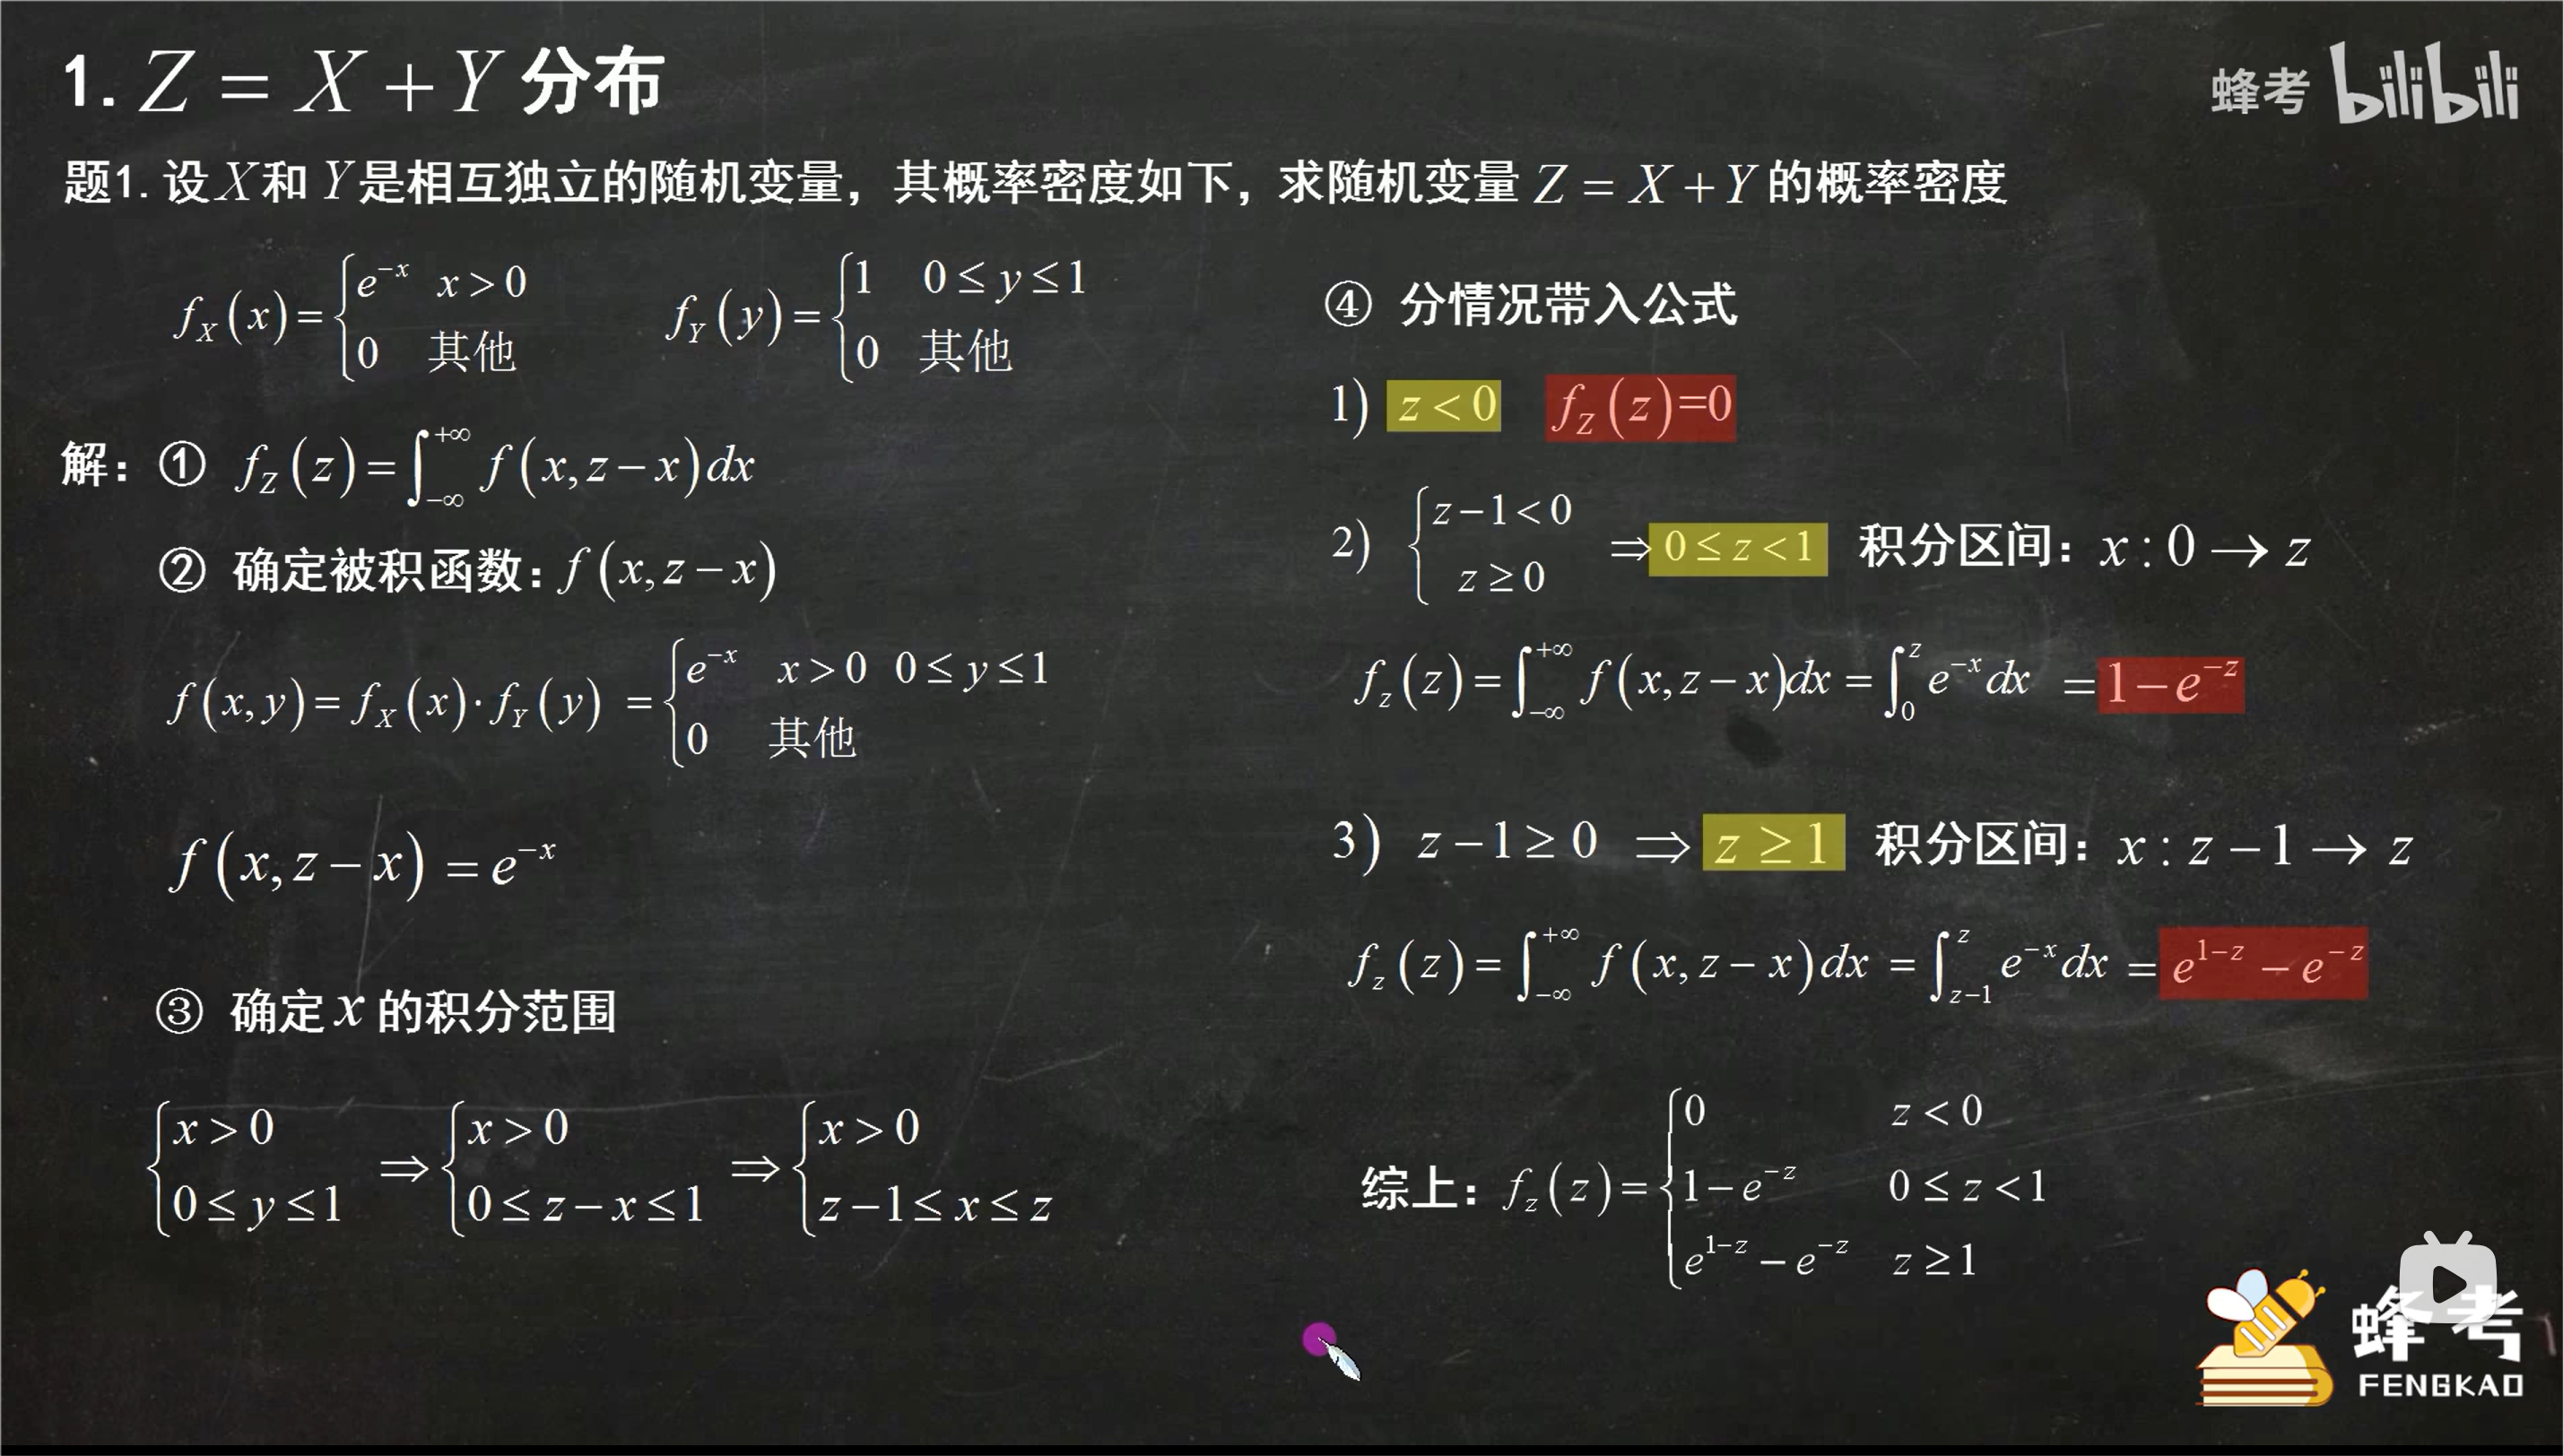 1. Z = X + Y 分布
蜂考 bilibili
题1. 设 X 和 Y 是相互独立的随机变量，其概率密度如下，求随机变量 Z = X + Y 的概率密度
f_X(x) = { e^{-x} x > 0
0 其他
f_Y(y) = { 1 0 ≤ y ≤ 1
0 其他
解：① f_Z(z) = ∫_{-∞}^{+∞} f(x, z − x)dx
② 确定被积函数：f(x, z − x)
f(x, y) = f_X(x)·f_Y(y) = { e^{-x} x > 0 0 ≤ y ≤ 1
0 其他
f(x, z − x) = e^{-x}
③ 确定 x 的积分范围
{ x > 0
0 ≤ y ≤ 1
⇒ { x > 0
0 ≤ z − x ≤ 1
⇒ { x > 0
z − 1 ≤ x ≤ z
④ 分情况带入公式
1) z < 0 f_Z(z)=0
2) { z − 1 < 0
z ≥ 0
⇒ 0 ≤ z < 1 积分区间：x : 0 → z
f_z(z) = ∫_{-∞}^{+∞} f(x, z − x)dx = ∫_0^z e^{-x} dx = 1 − e^{-z}
3) z − 1 ≥ 0 ⇒ z ≥ 1 积分区间：x : z − 1 → z
f_z(z) = ∫_{-∞}^{+∞} f(x, z − x)dx = ∫_{z−1}^z e^{-x} dx = e^{1−z} − e^{-z}
综上：f_z(z) = { 0 z < 0
1 − e^{-z} 0 ≤ z < 1
e^{1−z} − e^{-z} z ≥ 1
蜂考
FENGKAO